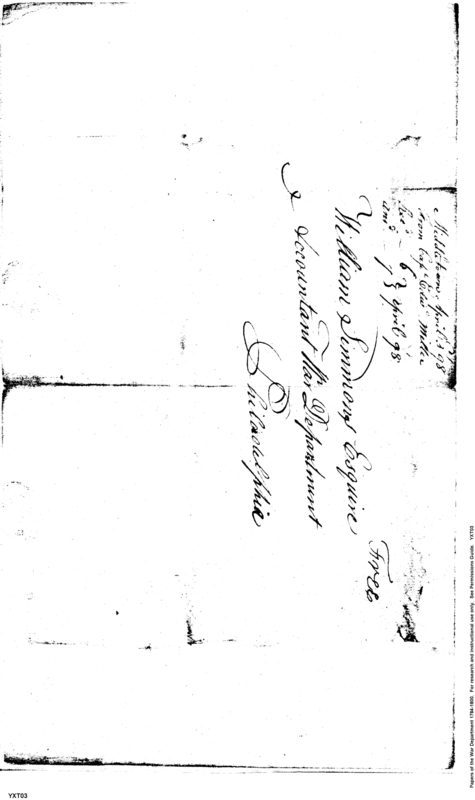 Middletown April 3d 98
from Capt Edwd Miller
Recd - 6 } april 98
ansd - 7 }
Free
William Simmons Esquire
Accountant War Department
Philadelphia
Papers of the War Department 1784-1800. For research and instructional use only. See Permissions Guide. YXT03
YXT03